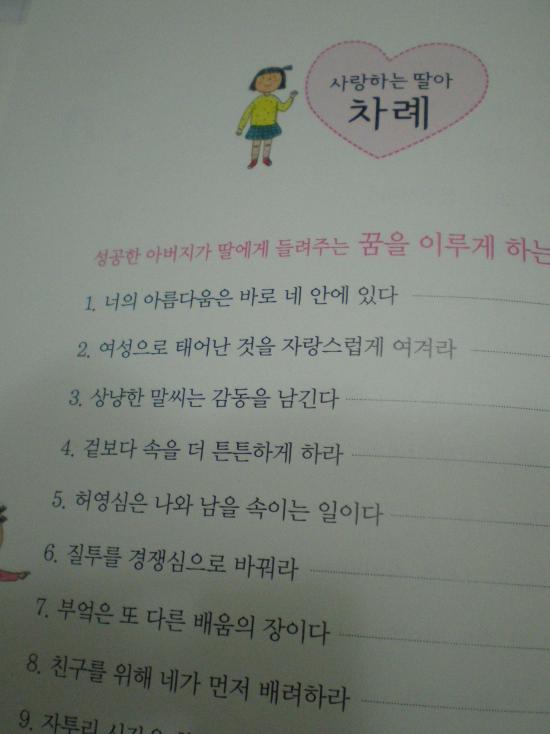 사랑하는 딸아
차례
성공한 아버지가 딸에게 들려주는 꿈을 이루게 하는
1. 너의 아름다움은 바로 네 안에 있다
2. 여성으로 태어난 것을 자랑스럽게 여겨라
3. 상냥한 말씨는 감동을 남긴다
4. 겉보다 속을 더 튼튼하게 하라
5. 허영심은 나와 남을 속이는 일이다
6. 질투를 경쟁심으로 바꿔라
7. 부엌은 또 다른 배움의 장이다
8. 친구를 위해 네가 먼저 배려하라
9. 자투리